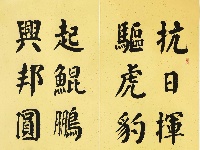 抗日揮
驅虎豹
起鯤鵬
興邦圓